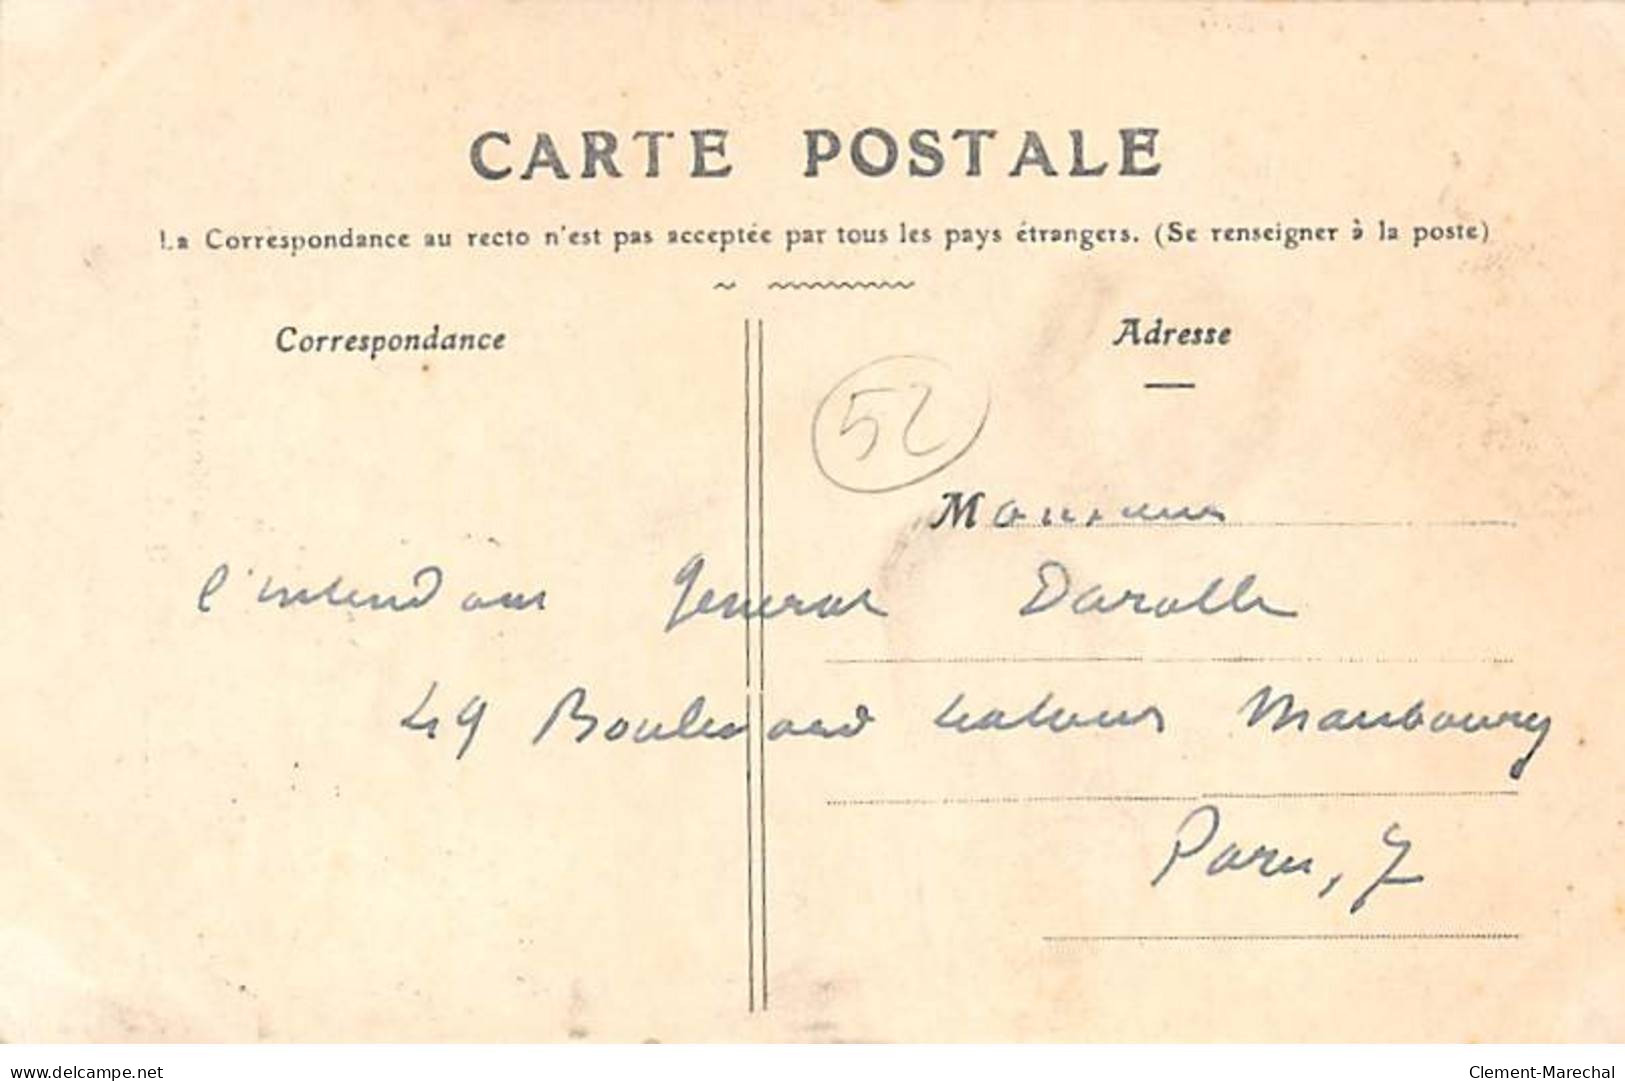 CARTE POSTALE
La Correspondance au recto n'est pas acceptée par tous les pays étrangers. (Se renseigner à la poste)
Correspondance
Adresse
52
Monsieur
l'intendant General Darolle
49 Boulevard Latour Maubourg
Paris, 7
www.delcampe.net
Clement-Marechal